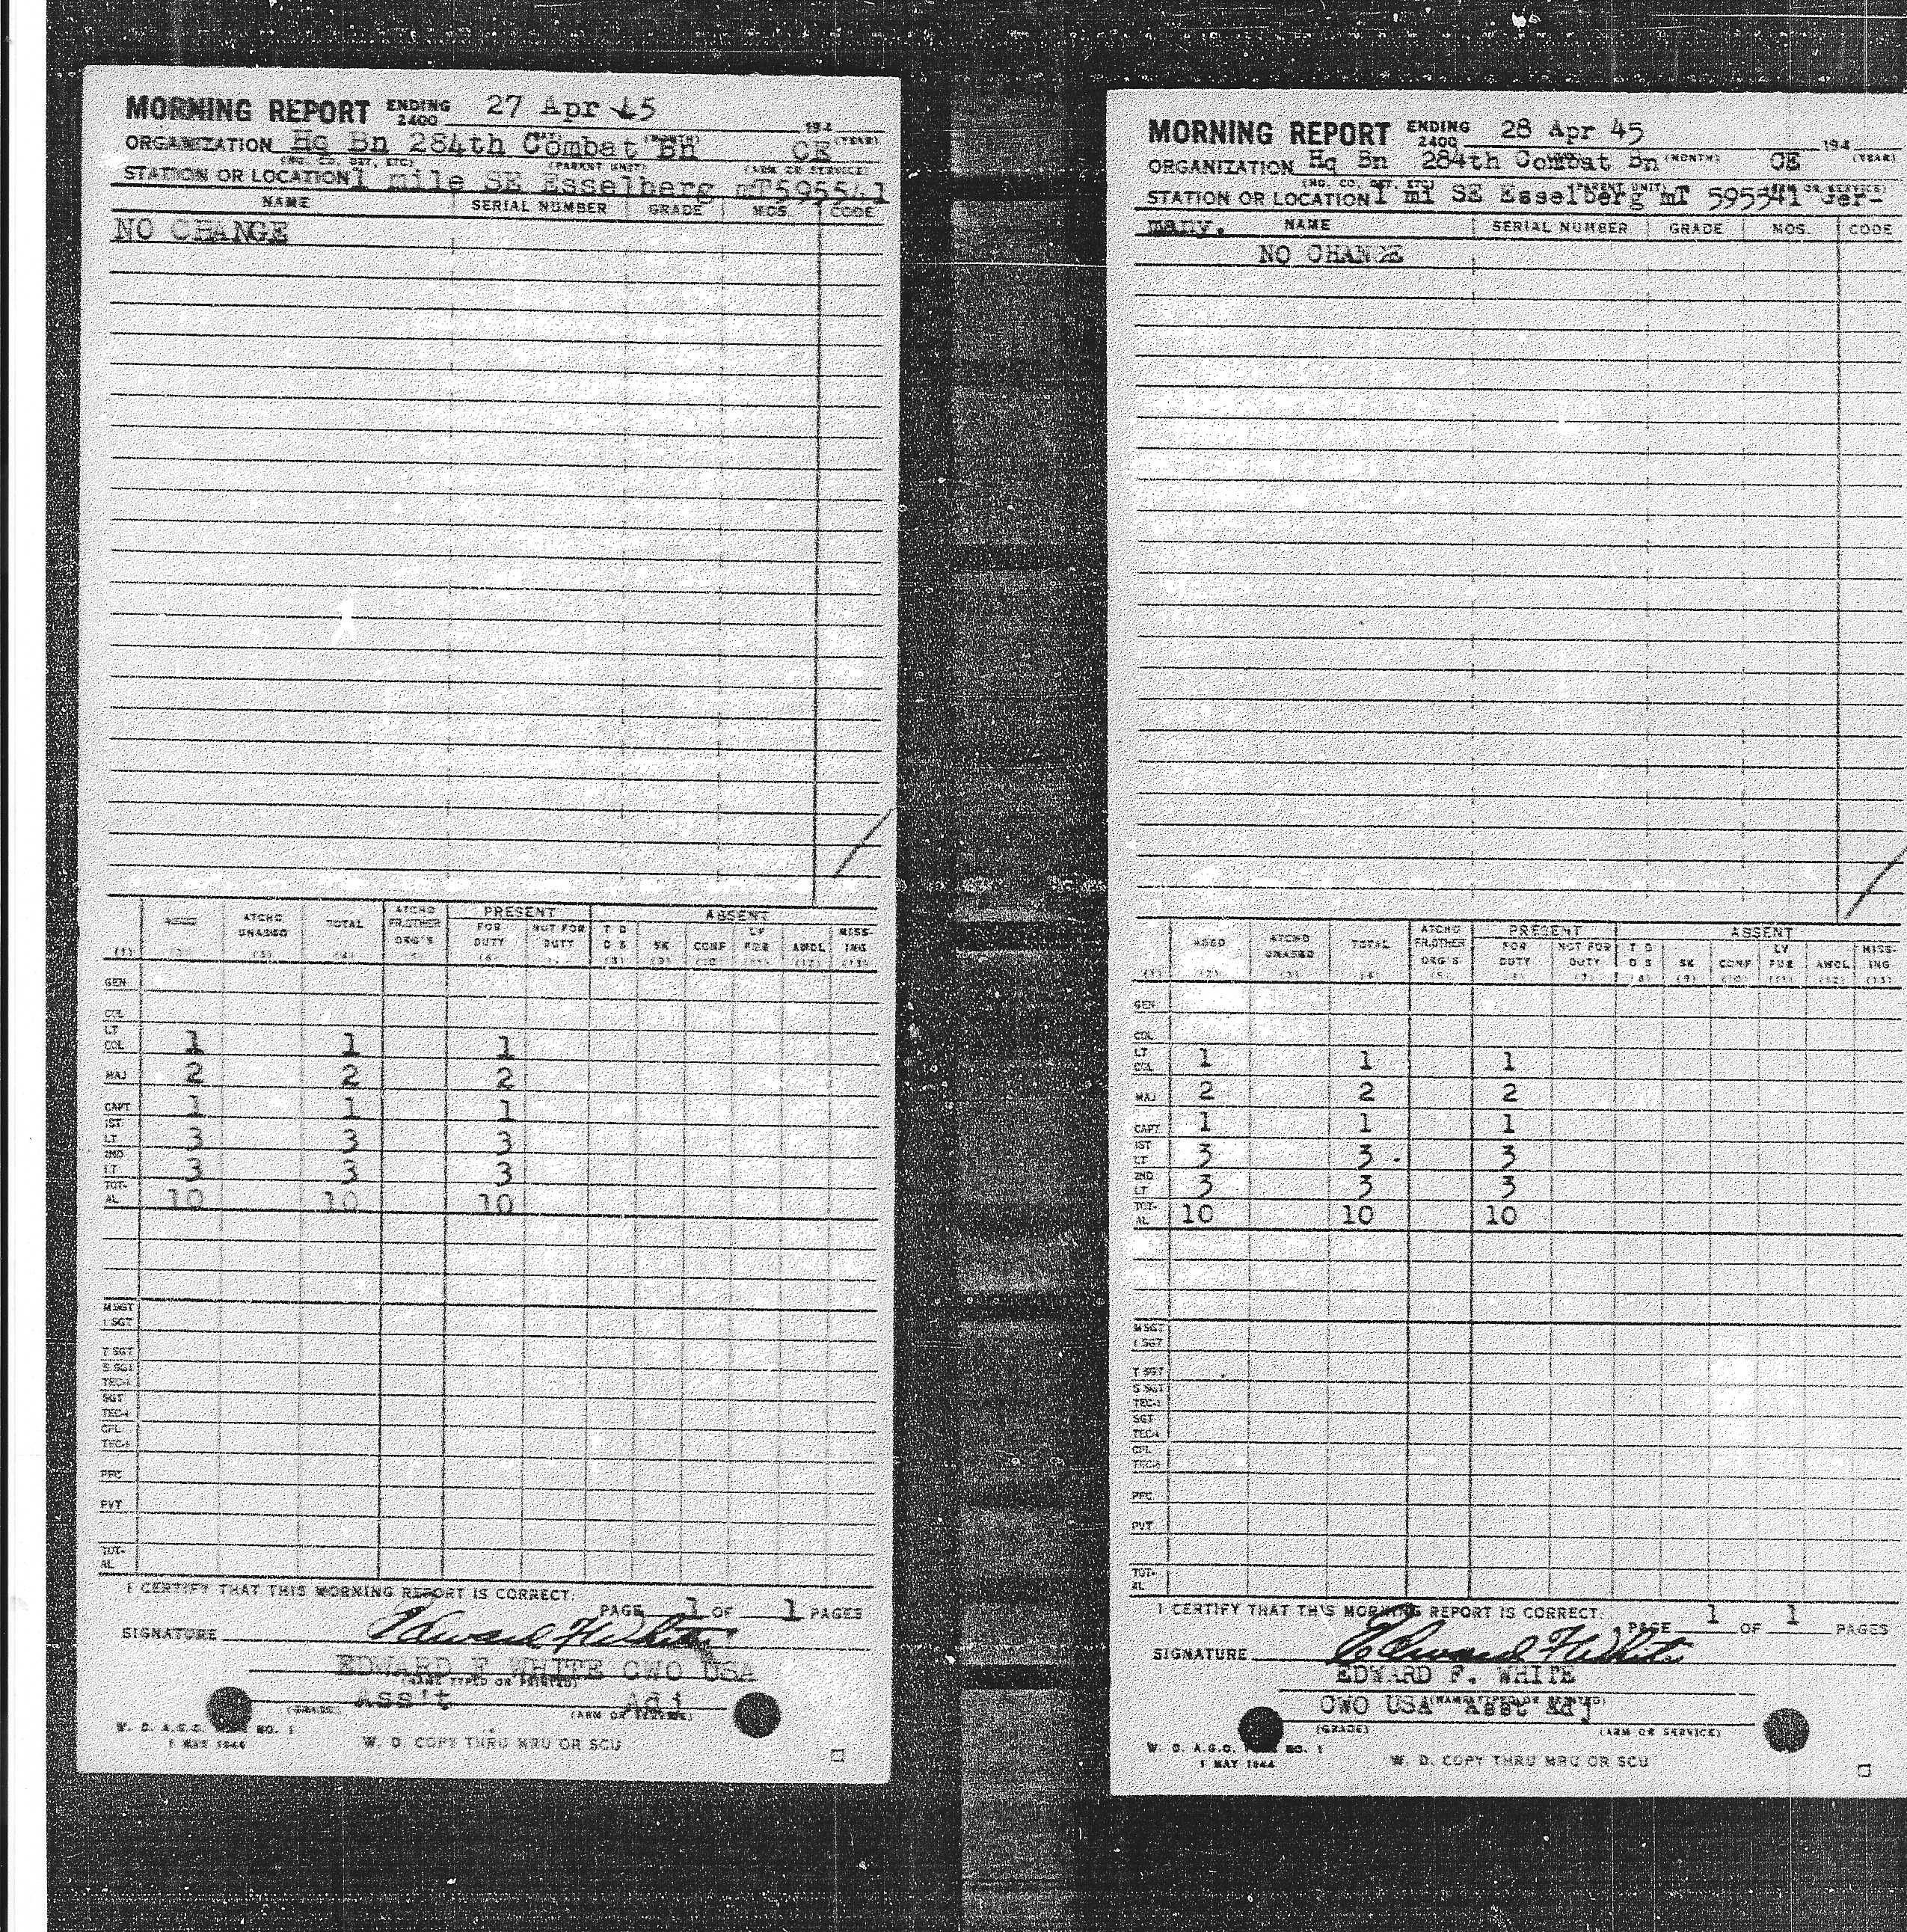 MORNING REPORT ENDING 2400 27 Apr 45 194 (YEAR)
ORGANIZATION Hq Bn 284th Combat Bn CE
(HQ. CO. DET, ETC) (PARENT UNIT) (ARM OR SERVICE)
STATION OR LOCATION 1 mile SE Esselberg mT595541
NAME SERIAL NUMBER GRADE MOS. CODE
NO CHANGE
ATCHD UNASGD TOTAL ATCHD FR.OTHER ORG'S PRESENT FOR DUTY NOT FOR DUTY ABSENT T D D S SK CONF LV FUR AWOL MISS-ING
(1) (2) (3) (4) (5) (6) (8) (9) (10) (11) (12) (13)
GEN
COL
LT COL 1 1 1
MAJ 2 2 2
CAPT 1 1 1
1ST LT 3 3 3
2ND LT 3 3 3
TOT-AL 10 10 10
M SGT
1 SGT
T SGT
S SGT
TEC-3
SGT
TEC-4
CPL
TEC-5
PFC
PVT
TOT-AL
I CERTIFY THAT THIS MORNING REPORT IS CORRECT:
PAGE 1 OF 1 PAGES
SIGNATURE Edward F White
EDWARD F WHITE CWO USA
(NAME TYPED OR PRINTED)
Ass't Adj
(GRADE) (ARM OR SERVICE)
W. D. A.G.O. NO. 1
1 MAY 1944 W. D. COPY THRU MRU OR SCU
MORNING REPORT ENDING 2400 28 Apr 45 194
ORGANIZATION Hq Bn 284th Combat Bn (MONTH) CE (YEAR)
STATION OR LOCATION 1 mi SE Esselberg mT 595541 Ger-
many. NAME SERIAL NUMBER GRADE MOS. CODE
NO CHANGE
ASGD ATCHD UNASGD TOTAL ATCHD FR.OTHER ORG'S PRESENT FOR DUTY NOT FOR DUTY ABSENT T D D S SK CONF LV FUR AWOL MISS-ING
(1) (2) (3) (4) (5) (6) (7) (8) (9) (10) (11) (12) (13)
GEN
COL
LT COL 1 1 1
MAJ 2 2 2
CAPT 1 1 1
1ST LT 3 3 3
2ND LT 3 3 3
TOT-AL 10 10 10
M SGT
1 SGT
T SGT
S SGT
TEC-3
SGT
TEC-4
CPL
TEC-5
PFC
PVT
TOT-AL
I CERTIFY THAT THIS MORNING REPORT IS CORRECT:
PAGE 1 OF 1 PAGES
SIGNATURE Edward F White
EDWARD F. WHITE
CWO USA Asst Adj
(NAME TYPED OR PRINTED)
(GRADE) (ARM OR SERVICE)
W. D. A.G.O. NO. 1
1 MAY 1944 W. D. COPY THRU MRU OR SCU